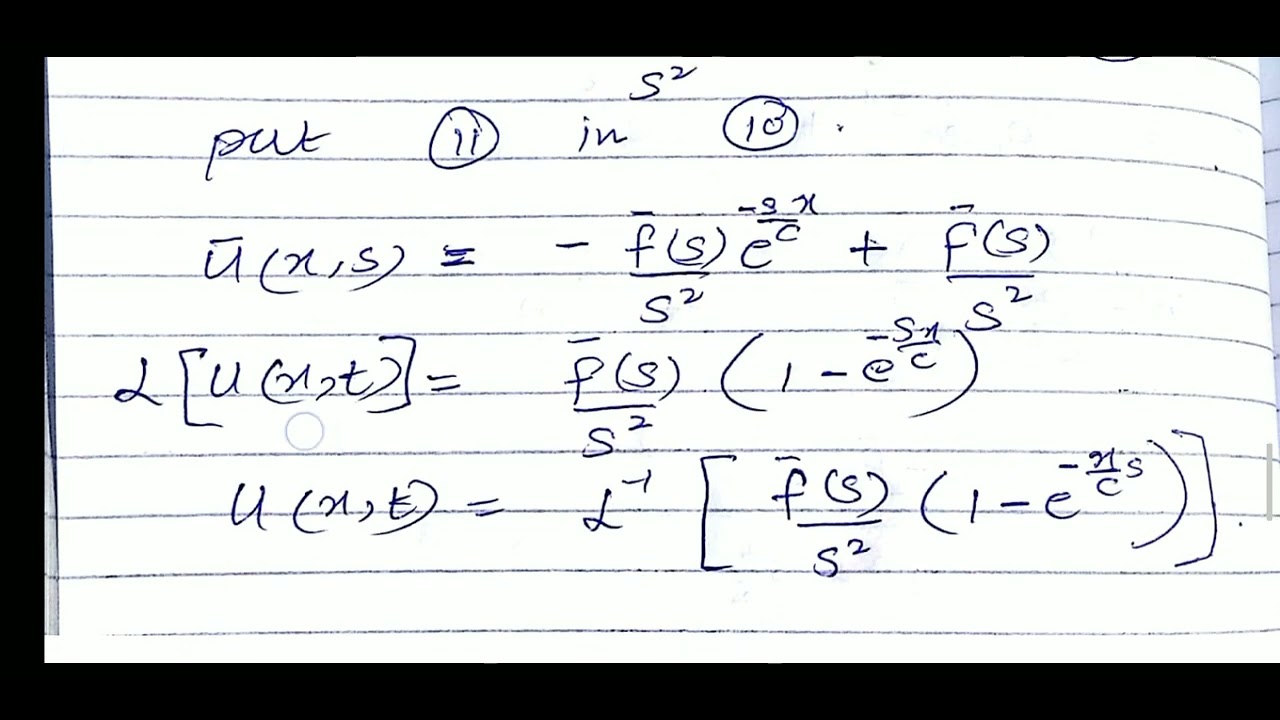 s²
put (11) in (10).
Ū(x,s) = - f̄(s)/s² e^(-s x/c) + f̄(s)/s²
L[U(x,t)] = f̄(s)/s² (1 - e^(-s x/c))
U(x,t) = L⁻¹ [ f̄(s)/s² (1 - e^(-x/c s)) ].